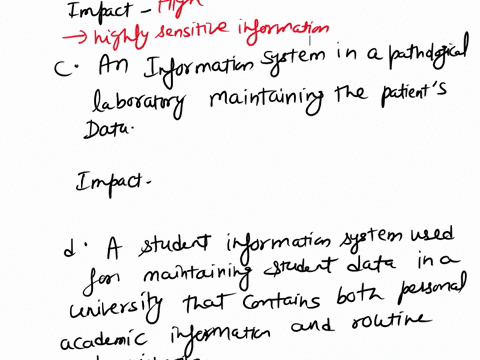 Impact - High
→ highly sensitive information
c. An Information system in a pathological
laboratory maintaining the patient's
Data.
Impact -
d. A student information system used
for maintaining student data in a
university that contains both personal
academic information and routine